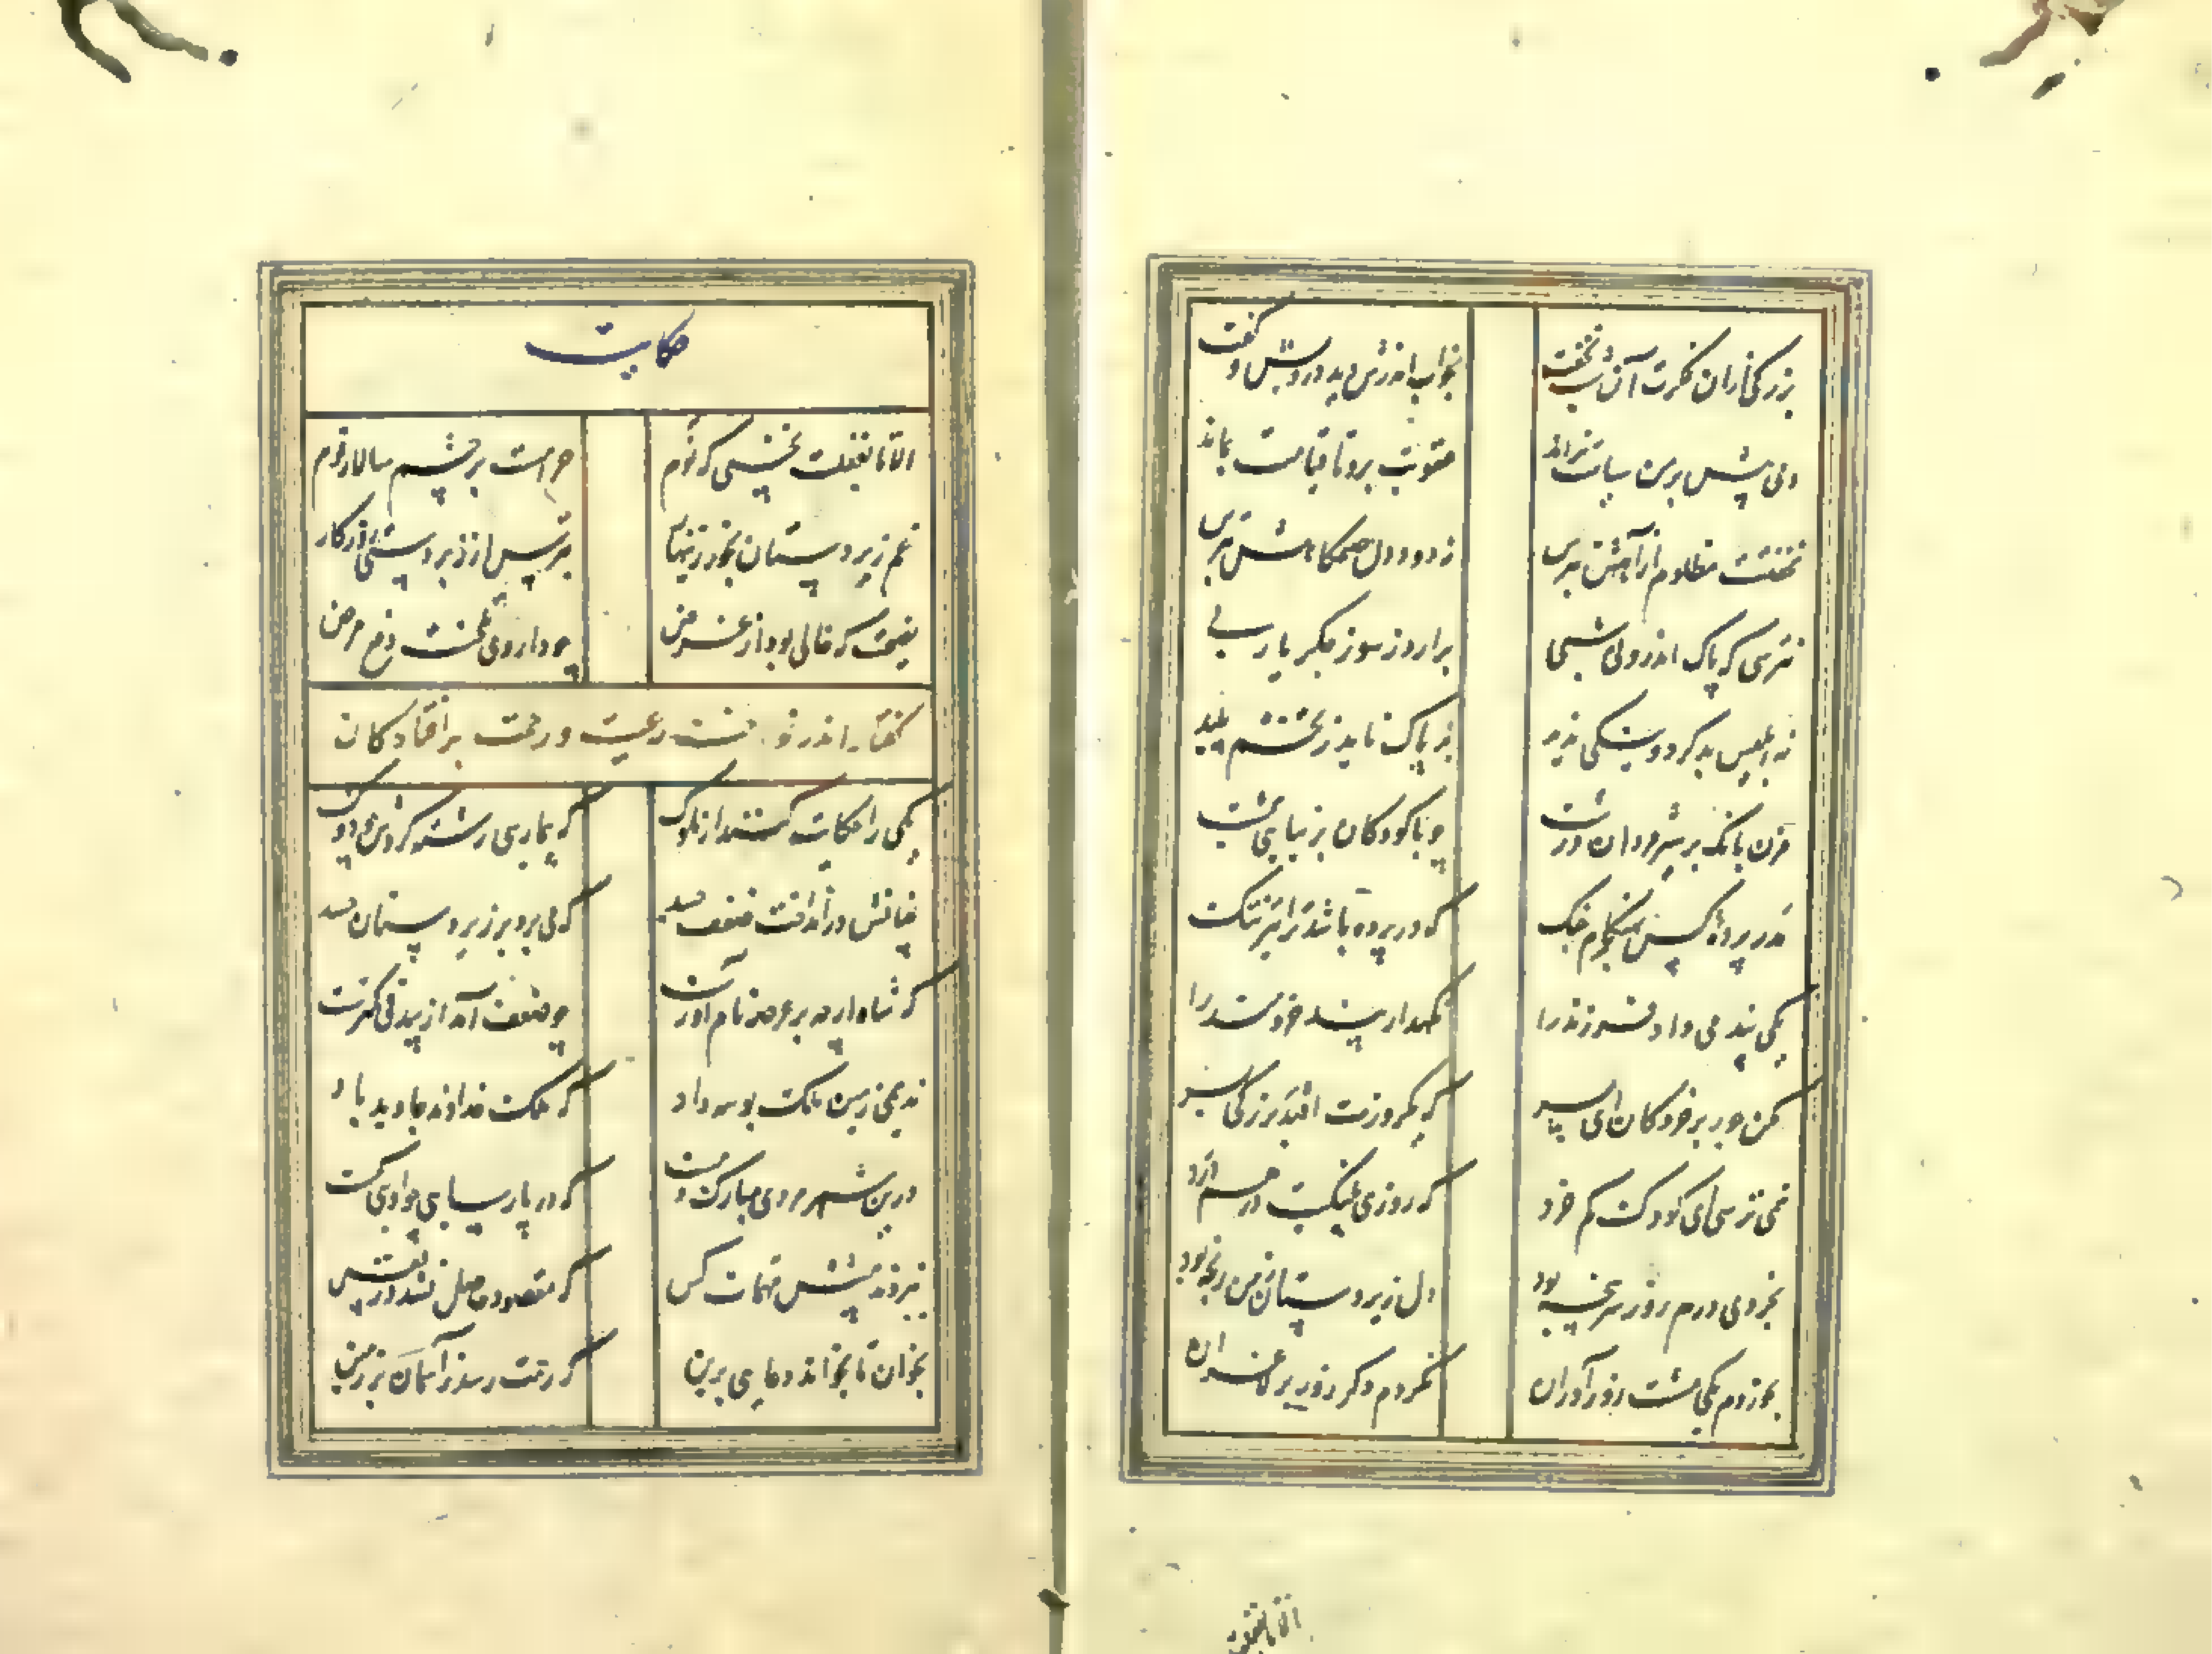 بزرگی در آن فکرت آن شب بخفت بخواب اندرش دید درویش و گفت
دمی بیش بر من سیاست نراند عقوبت برو تا قیامت بماند
نخفتست مظلوم از آهش بترس ز دود دل صبحگاهش بترس
نترسی که پاک اندرونی شبی برارد ز سوز جگر یا ربی
نه ابلیس بد کرد و نیکی ندید بر پاک ناید ز تخم پلید
مزن بانگ بر شیرمردان درشت چو با کودکان بر نیایی بمشت
مدر پرده کس بهنگام جنگ که در پرده باشد ترا نیز ننگ
یکی پند می داد فرزند را نگهدار پند خردمند را
مکن جور بر خردکان ای پسر که یکروزت افتد بزرگی بسر
نمی ترسی ای کودک کم خرد که روزی پلنگیت در هم درد
بخردی درم زور سرپنجه بود دل زیردستان ز من رنجه بود
بخوردم یکی مشت زورآوران نکردم دگر زور بر لاغران
الا تا بغفلت
حکایت
الا تا بغفلت نخسپی که نوم حرامست بر چشم سالار قوم
غم زیردستان بخور زینهار بترس از زبردستی روزگار
نصیحت که خالی بود از غرض چو داروی تلخست دفع مرض
گفتار اندر نواخت رعیت و رحمت بر افتادگان
یکی را حکایت کنند از ملوک که بیماری رشته کردش چو دوک
چنانش در انداخت ضعف جسد که می برد بر زیردستان حسد
که شاه ارچه بر عرصه نام آورست چو ضعف آمد از بیدقی کمترست
ندیمی زمین ملک بوسه داد که ملک خداوند جاوید باد
درین شهر مردی مبارک دمست که در پارسایی چو اویی کمست
نبردند پیشش مهمات کس که مقصود حاصل نشد در نفس
بخوان تا بخواند دعایی برین که رحمت رسد ز آسمان بر زمین